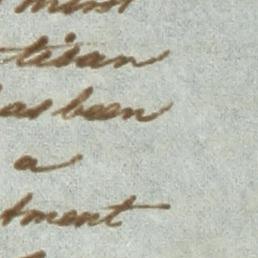 tisan
as been
a
tment